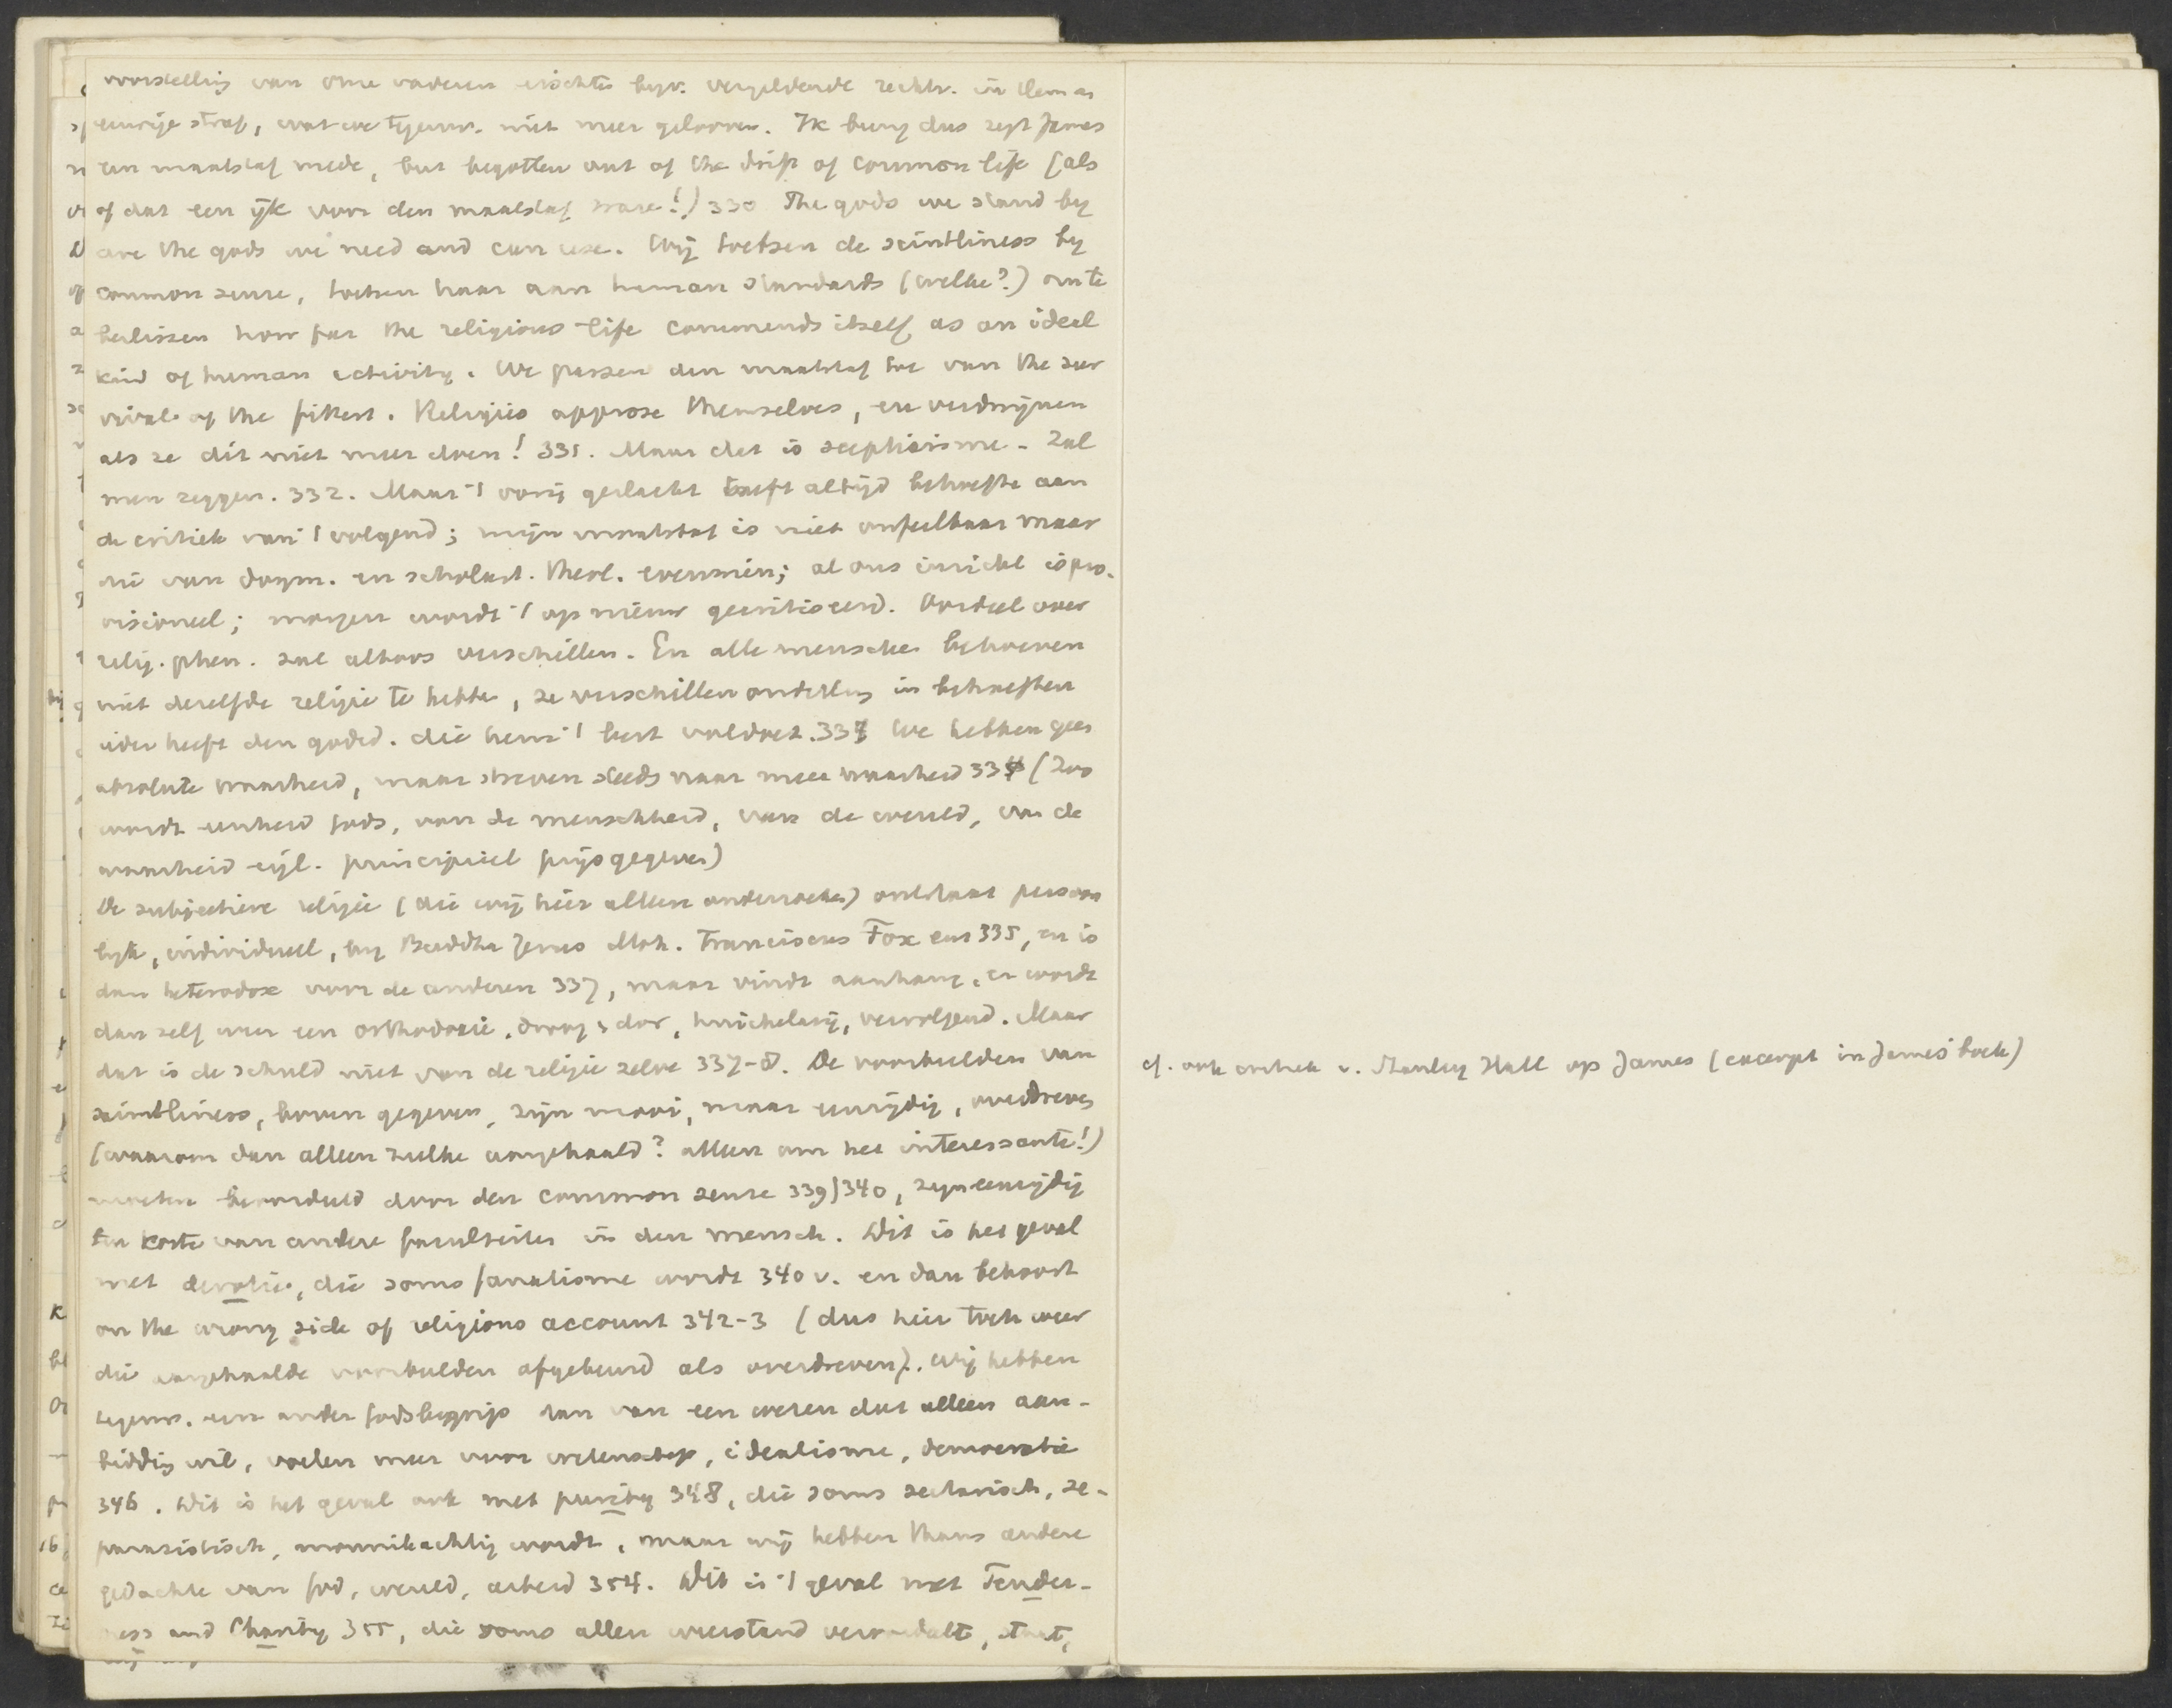 voorstelling van onze vaderen eischte bijv. vergeldende rechtv. in hem en
eeuwige straf, wat we tegenw. niet meer gelooven. Ik breng dus zegt James
een maatstaf mede, but begotten out of the drift of common life (als
of dat een ijk voor den maatstaf ware!) 330 The gods we stand by
are the gods we need and can use. Wij toetsen de saintliness by
common sense, toetsen haar aan human standards (welke?) om te
beslissen how far the religious life commends itself as an ideal
kind of human activity. We passen den maatstaf toe van the sur
vival of the fittest. Religies approve themselves, en verdwijnen
als ze dit niet meer doen! 331. Maar dat is scepticisme - zal
men zeggen. 332. Maar 't vorig geslacht heeft altijd behoefte aan
de critiek van 't volgend; mijn maatstaf is niet onfeilbaar maar
die van dogm. en scholast. theol. evenmin; al ons inzicht is pro-
visioneel; morgen wordt 't op nieuw gecritiseerd. Oordeel over
relig. phen. zal altoos verschillen. En alle menschen behoeven
niet dezelfde religie te hebben, ze verschillen onderling in behoeften
ieder heeft den godsd. die hem 't best voldoet. 333 We hebben geen
absolute waarheid, maar streven steeds naar meer waarheid 334 (Zoo
wordt eenheid Gods, van de menschheid, van de wereld, van de
waarheid eigl. principieel prijsgegeven)
De subjectieve religie (die wij hier alleen onderzoeken) ontstaat persoon
lijk, individueel, bij Buddha Jezus Moh. Franciscus Fox enz 335, en is
dan heterodox voor de anderen 337, maar vindt aanhang, en wordt
dan zelf weer een orthodoxie, droog, dor, huichelarij, vervolgend. Maar
dat is de schuld niet van de religie zelve 337-8. De voorbeelden van
saintliness, boven gegeven, zijn mooi, maar eenzijdig, overdreven
(waarom dan alleen zulke aangehaald? alleen om het interessante!)
moeten beoordeeld door den common sense 339) 340, zijn eenzijdig
ten koste van andere faculteiten in den mensch. Dit is het geval
met devotie, die soms fanatisme wordt 340 v. en dan behoort
on the wrong side of religions account 342-3 (dus hier toch weer
die aangehaalde voorbeelden afgekeurd als overdreven). Wij hebben
tegenw. een ander Godsbegrip dan van een wezen dat alleen aan-
bidding wil, voelen meer voor wetenschap, idealisme, democratie
346. Dit is het geval ook met purity 348, die soms sectarisch, se-
paratistisch, monnikachtig wordt, maar wij hebben thans andere
gedachte van God, wereld, arbeid 354. Dit is 't geval met Tender-
ness and Charity 355, die soms allen weerstand veroordeelt,
cf. ook critiek v. Stanley Hall op James (excerpt in James' boek)